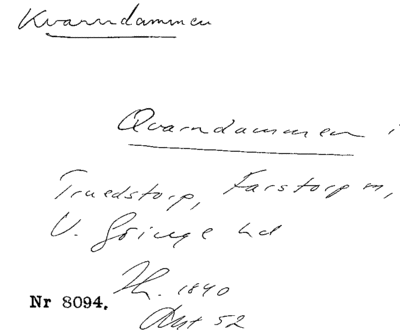 Kvarndammen
Qvarndammen i
Truedstorp, Farstorp m,
V. Göinge hd
1840
Nr 8094.
Akt 52